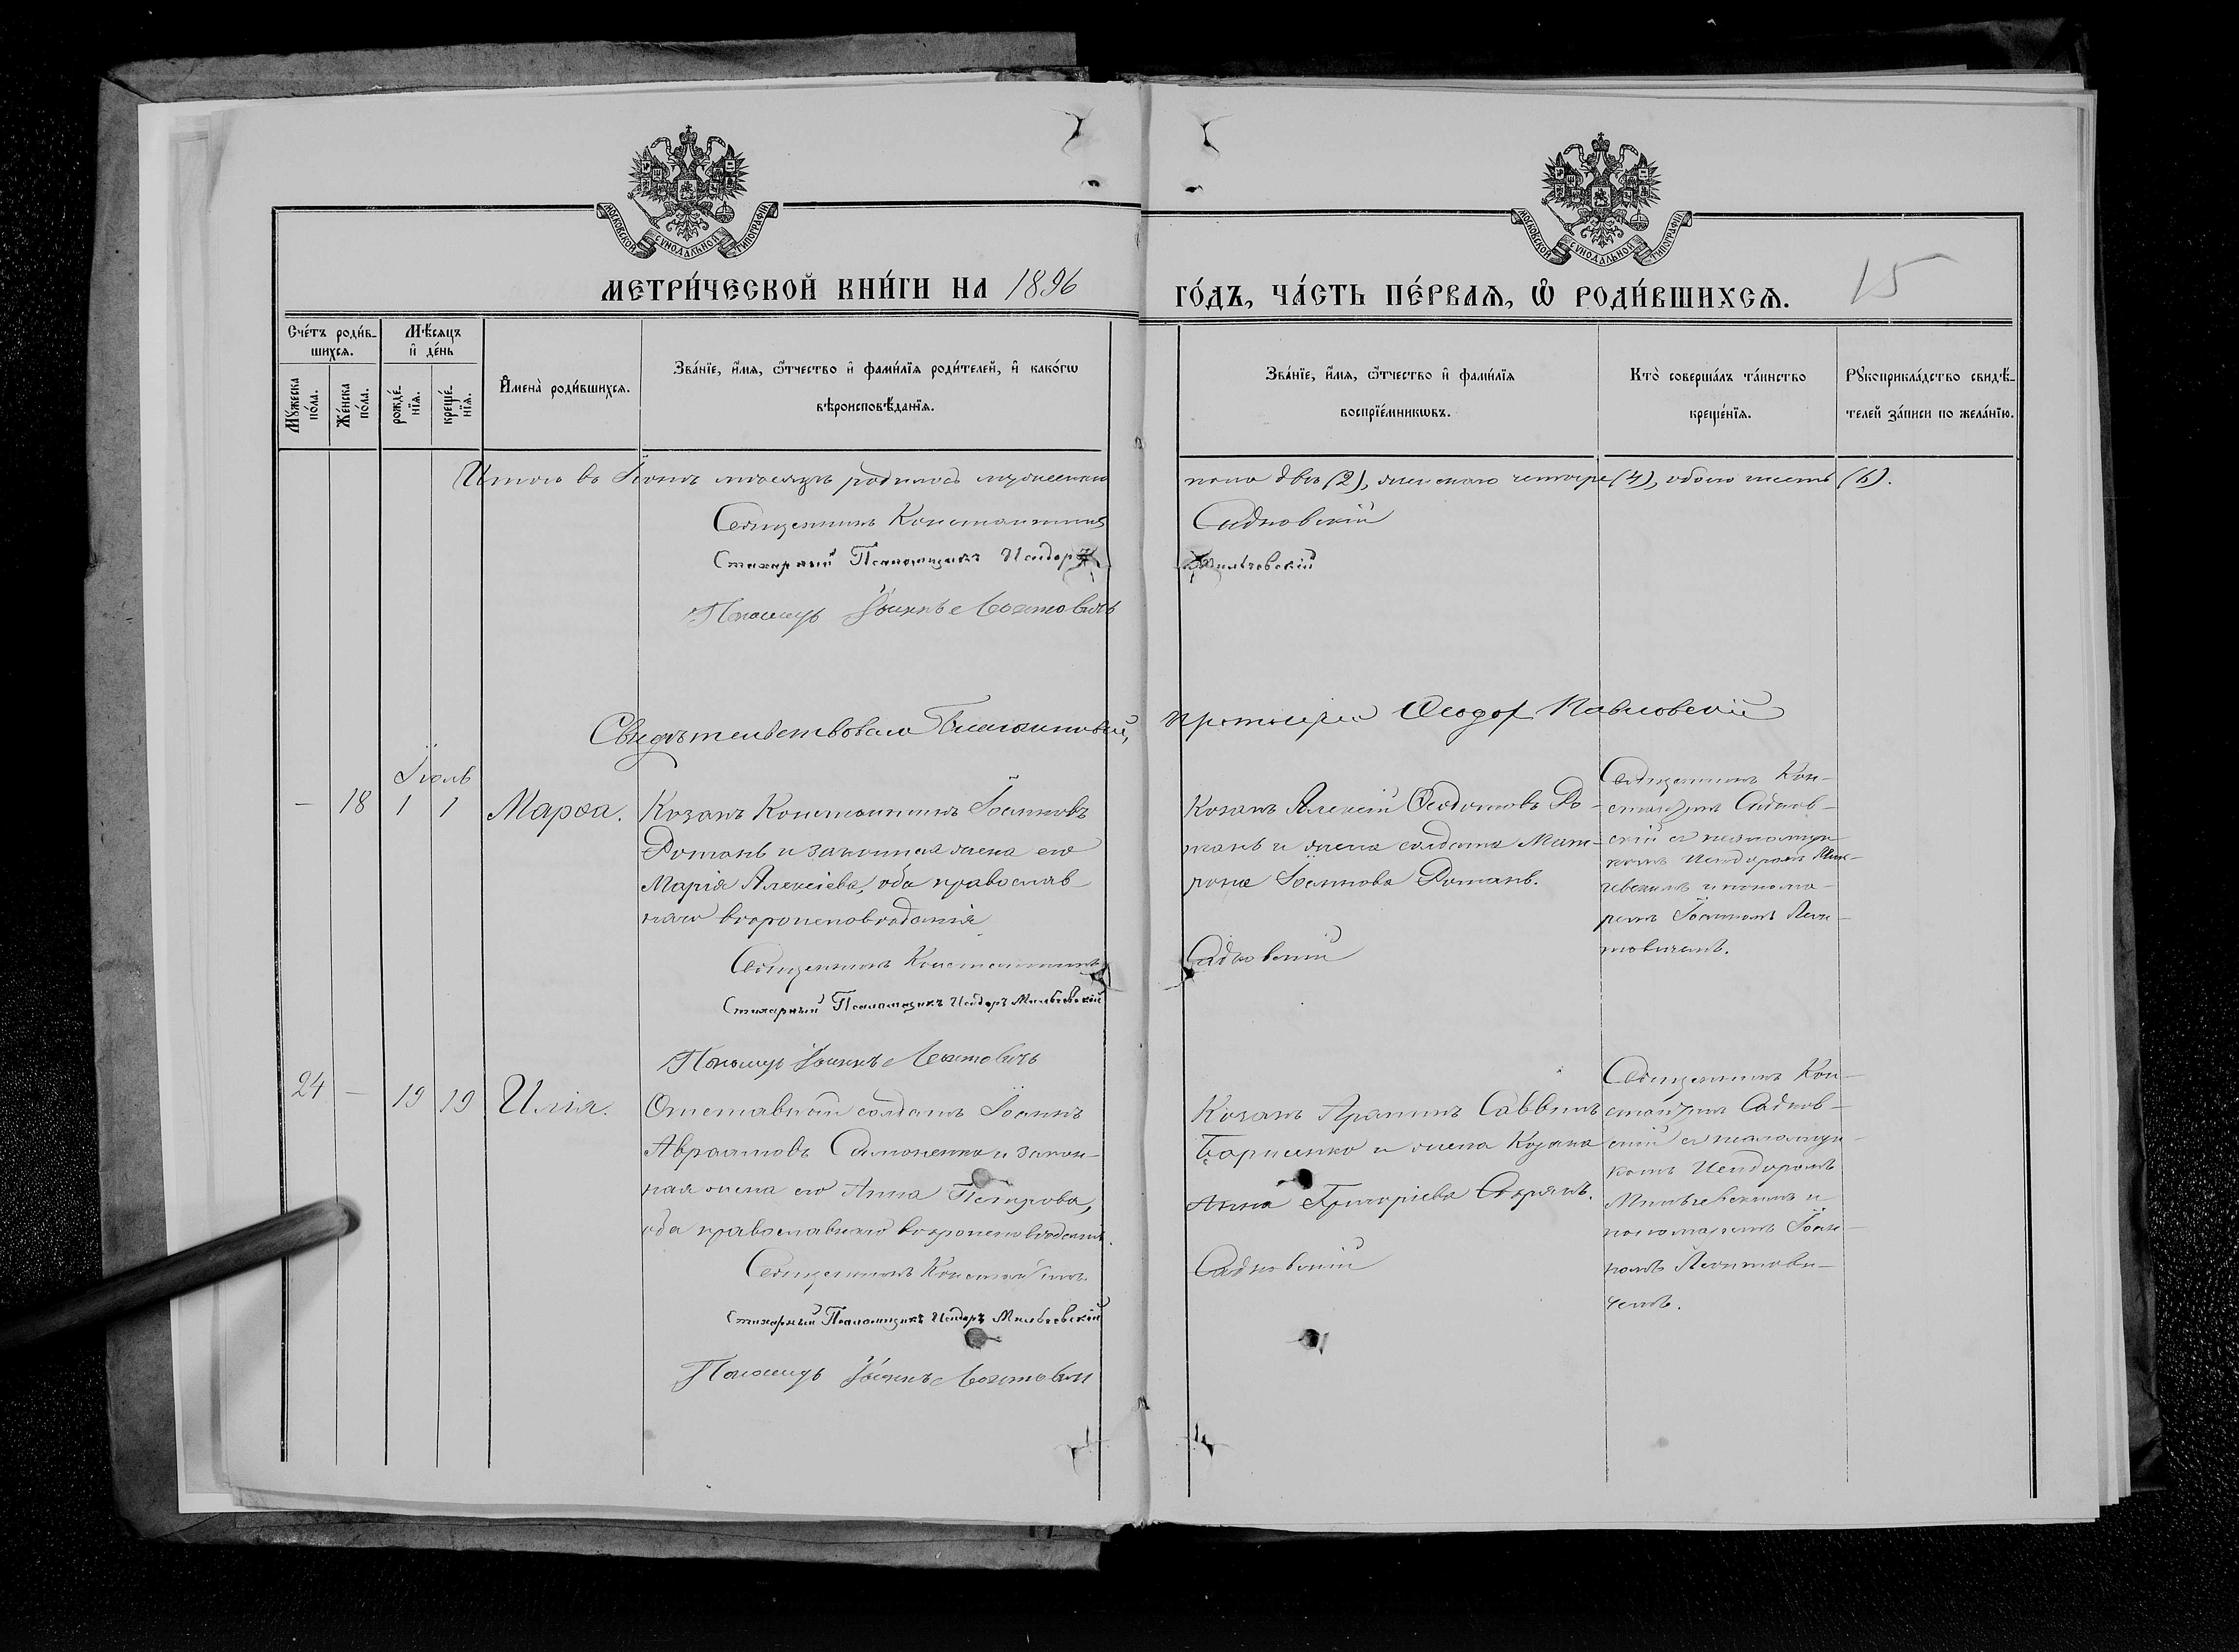 МОСКОВСКОЙ СѴНОДАЛЬНОЙ ТИПОГРАФІИ
МОСКОВСКОЙ СѴНОДАЛЬНОЙ ТИПОГРАФІИ
МЕТРИ́ЧЕСКОЙ КНИ́ГИ НА 1896
ГО́ДЪ, ЧА́СТЬ ПЕ́РВАѦ, Ѡ҆ РОДИ́ВШИХСѦ.
15
Сче́тъ роди́в-
шихсѧ.
Мѣ́сѧцъ
и҆ де́нь
Мꙋ́жеска
по́ла.
Же́нска
по́ла.
рожде́-
нїѧ.
креще́-
нїѧ.
И҆мена̀ роди́вшихсѧ.
Зва́нїе, и҆́мѧ, ѻ҆́тчество и҆ фами́лїѧ роди́телей, и҆ како́гѡ
вѣроисповѣ́данїѧ.
Зва́нїе, и҆́мѧ, ѻ҆́тчество и҆ фами́лїѧ
воспрїе́мникѡвъ.
Кто̀ соверша́лъ та́инство
креще́нїѧ.
Рꙋкоприкла́дство свидѣ́-
телей за́писи по жела́нїю.
Итого въ Іюнѣ мѣсяцѣ родилось мужескаго
пола два (2), женскаго четыре (4), обоего шесть (6).
Священникъ Константинъ
Садковскій
Стихарный Псаломщикъ Исидоръ
Мильчевскій
Пономарь Іоаннъ Леонтовичъ
Свидѣтельствовалъ Благочинный,
протоіерей Ѳеодоръ Павловскій
Іюль
— 18 1 1 Марѳа.
Козакъ Константинъ Іоанновъ
Ротань и законная жена его
Марія Алексіева, оба православ-
наго вѣроисповѣданія
Козакъ Алексій Ѳеодотовъ Ро-
тань и жена солдата Мат-
рона Іоаннова Ротань.
Священникъ Кон-
стантинъ Садков-
скій съ псаломщи-
комъ Исидоромъ Миль-
чевскимъ и понома-
ремъ Іоанномъ Леон-
товичемъ.
Священникъ Константинъ
Садковскій
Стихарный Псаломщикъ Исидоръ Мильчевскій
Пономарь Іоаннъ Леонтовичъ
24 — 19 19 Илія.
Отставной солдатъ Іоаннъ
Авраамовъ Самоненко и закон-
ная жена его Анна Петрова,
оба православнаго вѣроисповѣданія.
Козакъ Саввинъ
Борисенко и жена Козака
Анна Григоріева
Священникъ Кон-
стантинъ Садков-
скій съ псаломщи-
комъ Исидоромъ
Мильчевскимъ и
пономаремъ Іоан-
номъ Леонтови-
чемъ.
Священникъ Константинъ
Садковскій
Стихарный Псаломщикъ Исидоръ Мильчевскій
Пономарь Іоаннъ Леонтович